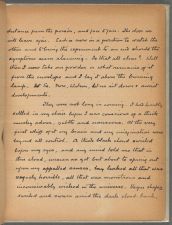 distance from the poison, and face to face. The door we
will leave ajar. Each is now in a position to watch the
other and to bring the experiment to an end should the
symptoms seem alarming. Is that all clear? Well
then I now take our powder or what remains of it
from the envelope and I lay it above the burning
lamp. So! Now, Watson, let us sit down & await
developments".
They were not long in coming. I had hardly
settled in my chair before I was conscious of a thick
musky odour, subtle and nauseous. At the very
first whiff of it my brain and my imagination were
beyond all control. A thick black cloud swirled
before my eyes, and my mind told me that in
this cloud, unseen as yet but about to spring out
upon my appalled senses, lurked all that was
vaguely horrible, all that was monstrous and
inconceivably wicked in the universe. Vague shapes
swirled and swam amid the dark cloud bank,